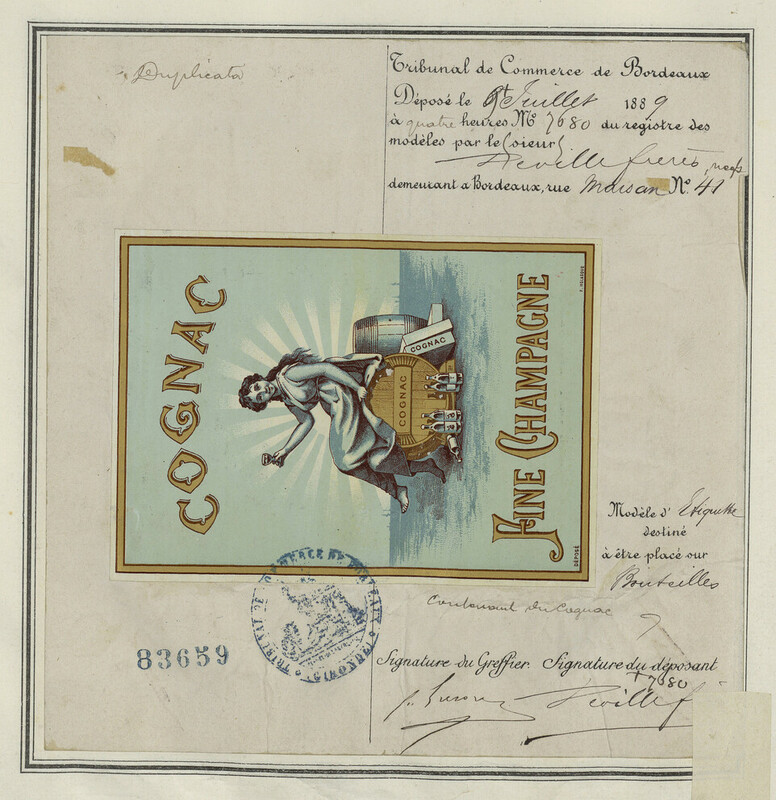 Duplicata
Tribunal de Commerce de Bordeaux
Déposé le Juillet 1889
à quatre heures No 7680 du registre des
modèles par le (sieur)
frères
demeurant a Bordeaux, rue No. 41
COGNAC
COGNAC
COGNAC
FINE CHAMPAGNE
DÉPOSÉ
Modèle d' Etiquette
destiné
à être placé sur
Bouteilles
contenant du Cognac
TRIBUNAL DE COMMERCE DE BORDEAUX
83659
Signature du Greffier. Signature du déposant
7680